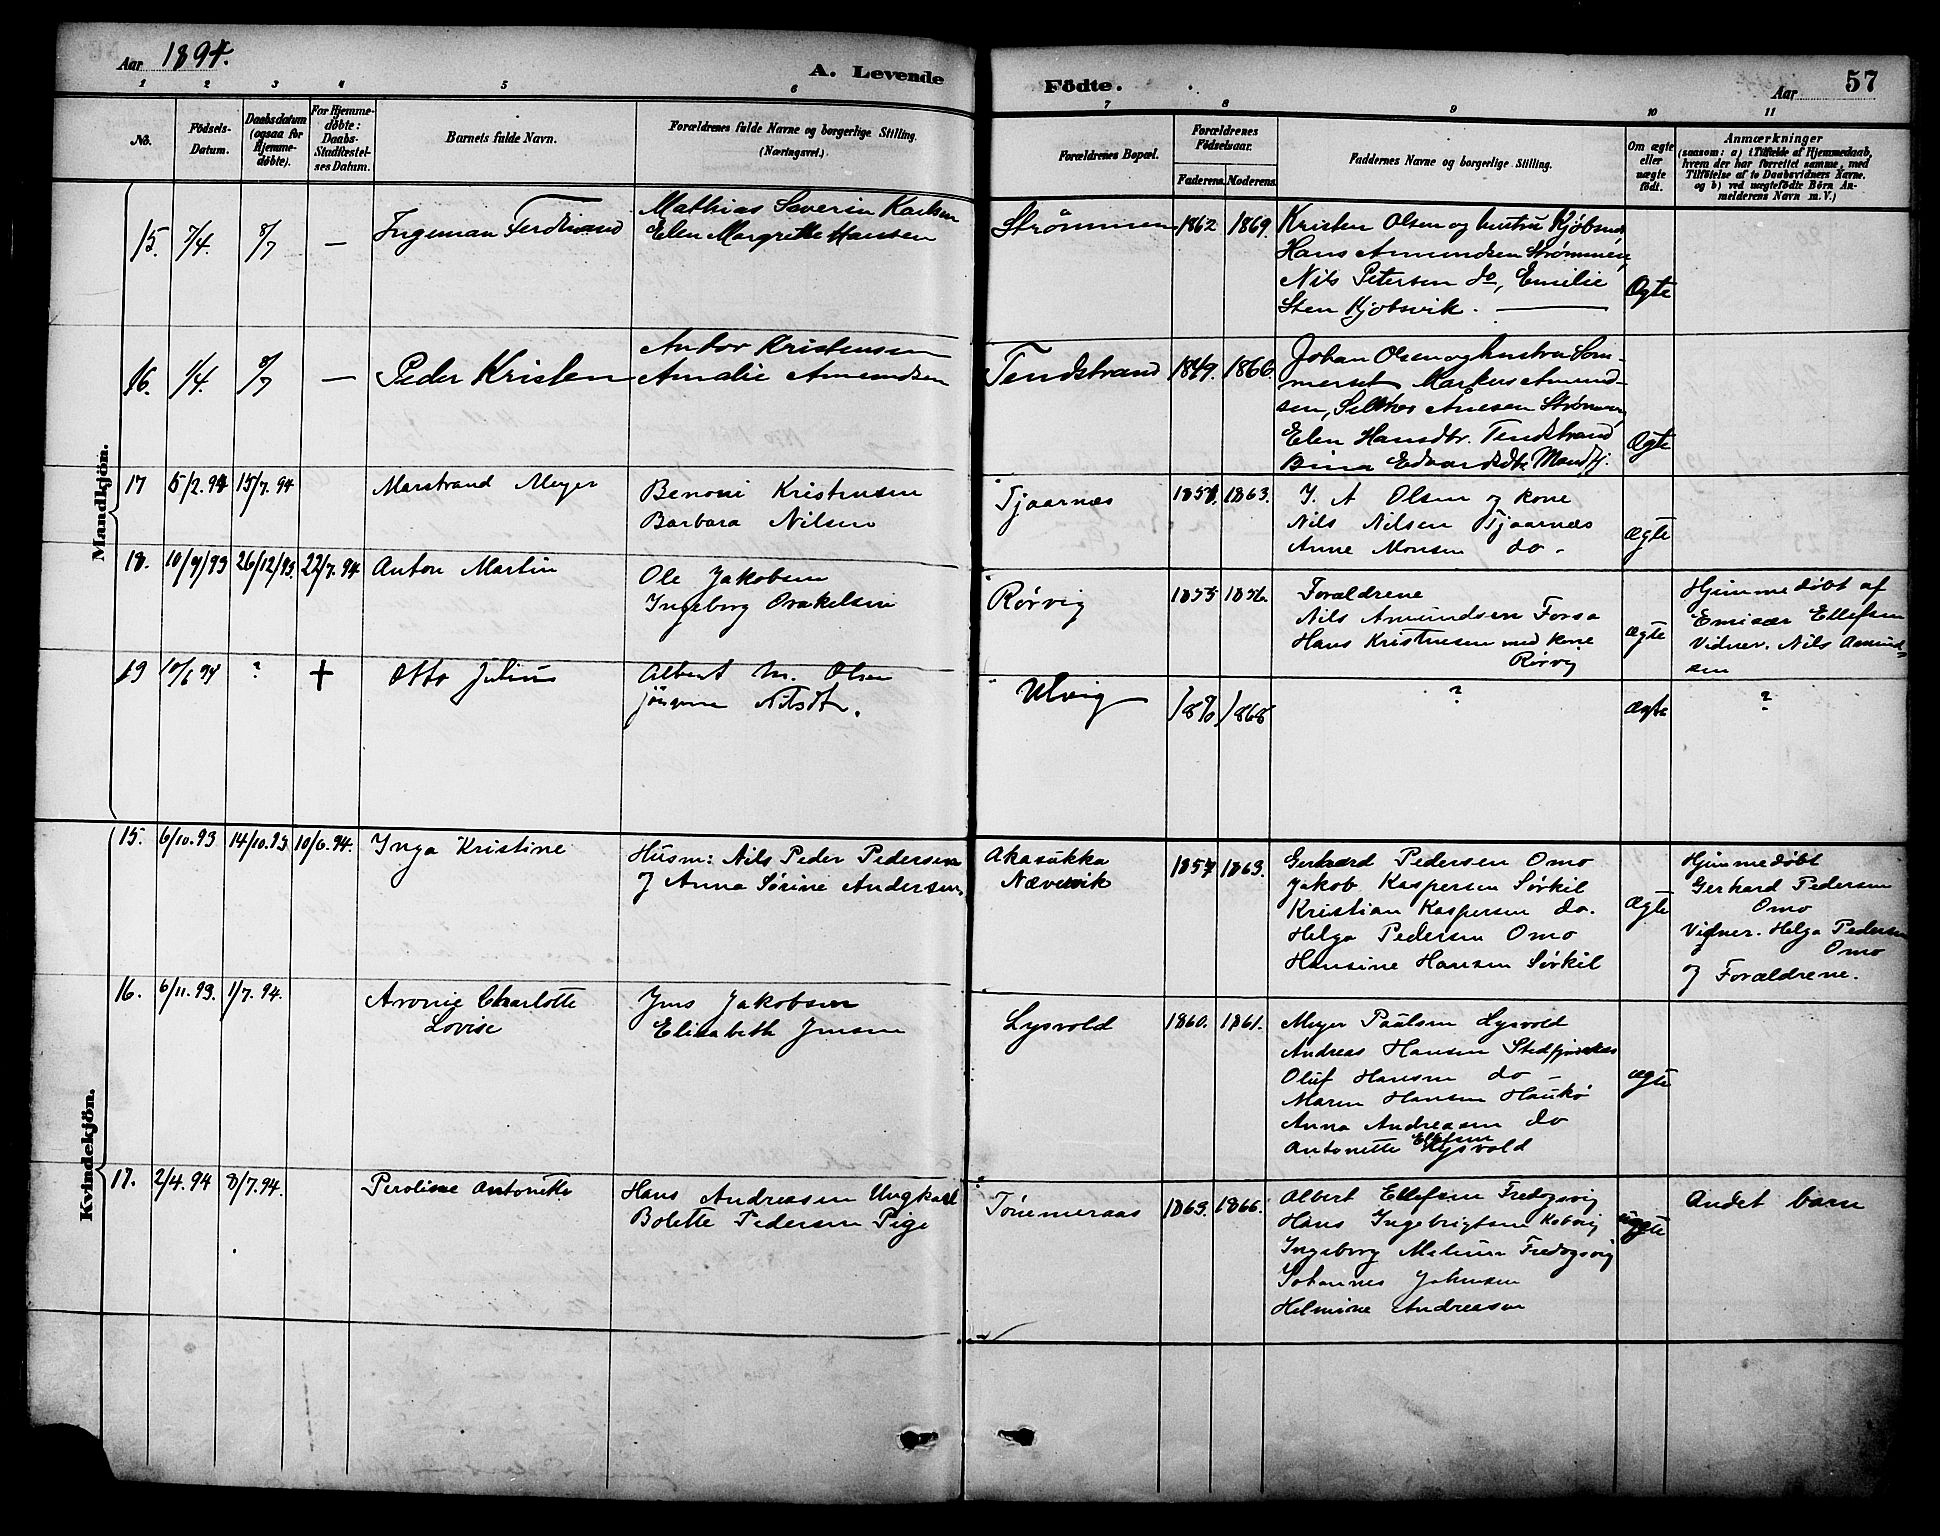 Aar 1894.
A. Levende
Födte.
Aar
57
1 2 3 4 5 6 7 8 9 10 11
No.
Födsels-Datum.
Daabsdatum (ogsaa for Hjemme-døbte).
For Hjemme-døbte: Daabs-Stadfæstel-ses Datum.
Barnets fulde Navn.
Forældrenes fulde Navne og borgerlige Stilling.
(Næringsvei.)
Forældrenes Bopæl.
Forældrenes Fødselsaar.
Faderens. Moderens.
Faddernes Navne og borgerlige Stilling.
Om ægte eller uægte födt.
Anmærkninger
(saasom: a) i Tilfælde af Hjemmedaab,
hvem der har forrettet samme, med
Tilföielse af to Daabsvidners Navne,
og b) ved uægtefödte Börn An-
melderens Navn m.V.)
Mandkjön.
15. 7/4. 8/7 — Ingeman Ferdinand
Mathias Severin Karlsen
Elen Margrethe Hansen
Strømmen 1862 1869.
Kristen Olsen og hustru
Hans Amundsen Strømmen,
Nils Petersen do, Emilie
Sten Kjobsvik. —
Ægte
16. 1/4. 8/7 — Peder Kristen
Antor Kristensen
Amalie Amundsen
Tendstrand 1849. 1866.
Johan Olsen og hustru Som-
merset Markus Amund-
sen, Arnesen Strømmen,
Elen Hansdtr. Tendstrand
Bina Edvardsdtr.
Ægte
17 5/2.94 15/7.94 Marstrand Meyer
Benoni Kristensen
Barbara Nilsen
Tjaarnæs 1863.
J. A Olsen og kone
Nils Nilsen Tjaarnæs
Anne Monsen do.
ægte
18. 10/9/93 26/12/93. 22/7.94 Anton Martin
Ole Jakobsen
Ingeborg Orakelsen
Rørvig 1855 1856.
Forældrene
Nils Amundsen Forsa
Hans Kristensen med kone
Rørvig
ægte
Hjemmedøbt af
Emisær Ellefsen
Vidner. Nils Amund-
sen
19 10/6 94 ? + Otto Julius
Albert M. Olsen
Nilsdt.
Ulvig 1870 1868
?
ægte
?
Kvindekjön.
15. 6/10.93 14/10.93 10/6.94. Inga Kristine
Husm: Nils Peder Pedersen
og Anna Sørine Andersen.
Akasukka
Nævervik
1857 1863.
Gerhard Pedersen Omo
Jakob Kaspersen Sørkil
Kristian Kaspersen do.
Helga Pedersen Omo
Hansine Hansen Sørkil
ægte
Hjemmedøbt
Gerhard Pedersen
Omo
Vidner. Helga Pedersen
Omo
og Forældrene.
16. 6/11.93. 1/7.94. Aronie Charlotte
Lovise
Jens Jakobsen
Elisabeth Jensen
Lysvold 1860. 1861.
Meyer Paulsen Lysvold
Andreas Hansen
Oluf Hansen do —
Maren Hansen Haukø
Anna Andreasen do
Ellefsen
Antonette Lysvold
ægte
17. 2/4.94 8/7.94. Peroline Antonette
Hans Andreasen Ungkarl
Bolette Pedersen Pige
Tønemeraas 1863. 1866.
Albert Ellefsen Fredogsvig
Hans Ingebrigtsen Kobvig
Ingeborg Fredogsvig
Johannes Johnsen
Helmine Andreasen
uægte
Andet barn